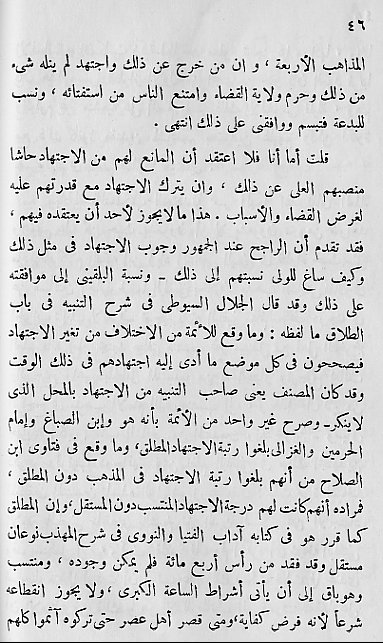 ٤٦
المذاهب الأربعة ، و ان من خرج عن ذلك واجتهد لم ينله شىء
من ذلك وحرم ولاية القضاء وامتنع الناس من استفتائه ، ونسب
للبدعة فتبسم ووافقنى على ذلك انتهى .
قلت أما أنا فلا اعتقد أن المانع لهم من الاجتهاد حاشا
منصبهم العلى عن ذلك ، وان يترك الاجتهاد مع قدرتهم عليه
لغرض القضاء والأسباب . هذا ما لا يجوز لأحد أن يعتقده فيهم ،
فقد تقدم أن الراجح عند الجمهور وجوب الاجتهاد فى مثل ذلك
وكيف ساغ للولى نسبتهم إلى ذلك - ونسبة البلقينى إلى موافقته
على ذلك وقد قال الجلال السيوطى فى شرح التنبيه فى باب
الطلاق ما لفظه : وما وقع للأئمة من الاختلاف من تغير الاجتهاد
فيصححون فى كل موضع ما أدى إليه اجتهادهم فى ذلك الوقت
وقد كان المصنف يعنى صاحب التنبيه من الاجتهاد بالمحل الذى
لا ينكر - وصرح غير واحد من الأئمة بأنه هو وإبن الصباغ وإمام
الحرمين والغزالى بلغوا رتبة الاجتهاد المطلق ، وما وقع فى فتاوى ابن
الصلاح من أنهم بلغوا رتبة الاجتهاد فى المذهب دون المطلق ،
فمراده أنهم كانت لهم درجة الاجتهاد المنتسب دون المستقل ، وإن المطلق
كما قرر هو فى كتابه آداب الفتيا والنووى فى شرح المهذب نوعان
مستقل وقد فقد من رأس أربع مائة فلم يمكن وجوده ، ومنتسب
وهو باق إلى أن يأتى أشراط الساعة الكبرى ، ولا يجوز انقطاعه
شرعاً لأنه فرض كفاية ، ومتى قصر أهل عصر حتى تركوه آثموا كلهم